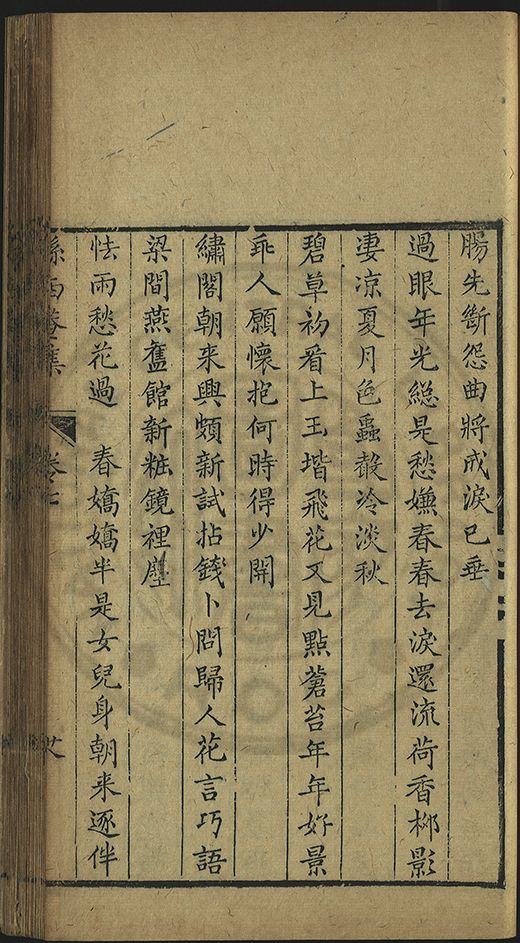 腸先斷怨曲將成淚已垂
過眼年光總是愁嫌春春去淚還流荷香柳影
凄凉夏月色蟲聲冷淡秋
碧草初看上玉堦飛花又見點蒼苔年年好景
乖人願懷抱何時得少開
繡閣朝来興頗新試拈錢卜問歸人花言巧語
梁間燕舊館新粧鏡裡塵
怯雨愁花過　春嬌嬌半是女兒身朝来逐伴
卷七